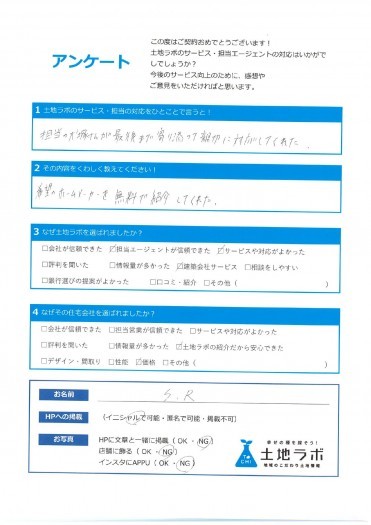 アンケート
この度はご契約おめでとうございます!
土地ラボのサービス・担当エージェントの対応はいかがで
しでしょうか?
今後のサービス向上のために、感想や
ご意見をいただければと思います。
1 土地ラボのサービス・担当の対応をひとことで言うと!
担当の大塚さんが最後まで寄り添って親切に対応してくれた。
2 その内容をくわしく教えてください!
希望のホームメーカーを無料で紹介してくれた。
3 なぜ土地ラボを選ばれましたか?
□会社が信頼できた ☑担当エージェントが信頼できた ☑サービスや対応がよかった
□評判を聞いた □情報量が多かった ☑建築会社サービス □相談をしやすい
□銀行選びの提案がよかった □口コミ・紹介 □その他( )
4 なぜその住宅会社を選ばれましたか?
□会社が信頼できた □担当営業が信頼できた □サービスや対応がよかった
□評判を聞いた □情報量が多かった ☑土地ラボの紹介だから安心できた
□デザイン・間取り □性能 ☑価格 □その他( )
お名前 S.R
HPへの掲載 (イニシャルで可能・匿名で可能・掲載不可)
お写真 HPに文章と一緒に掲載(OK・NG)
店舗に飾る(OK・NG)
インスタにAPPU(OK・NG)
幸せの種を探そう!
TOCHI
土地ラボ
地域のこだわり土地情報